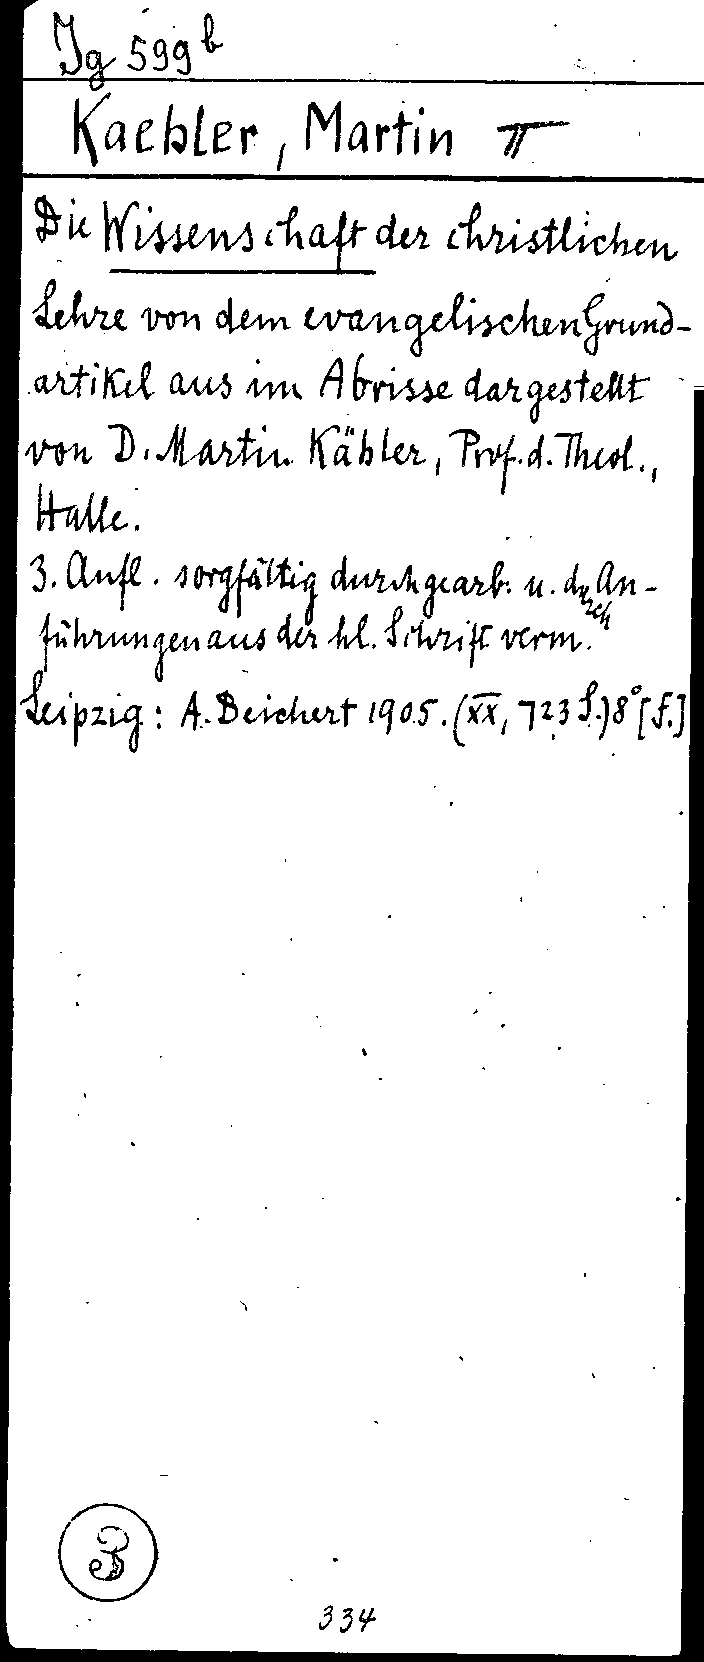 Jg 599 b
Kaehler, Martin π
Die Wissenschaft der christlichen
Lehre von dem evangelischen Grund-
artikel aus im Abrisse dargestellt
von D. Martin Kähler, Prof. d. Theol.,
Halle.
3. Aufl. sorgfältig durchgearb. u. durch An-
führungen aus der hl. Schrift verm.
Leipzig: A. Deichert 1905. (XX, 723 S.) 8° [F.]
3
334